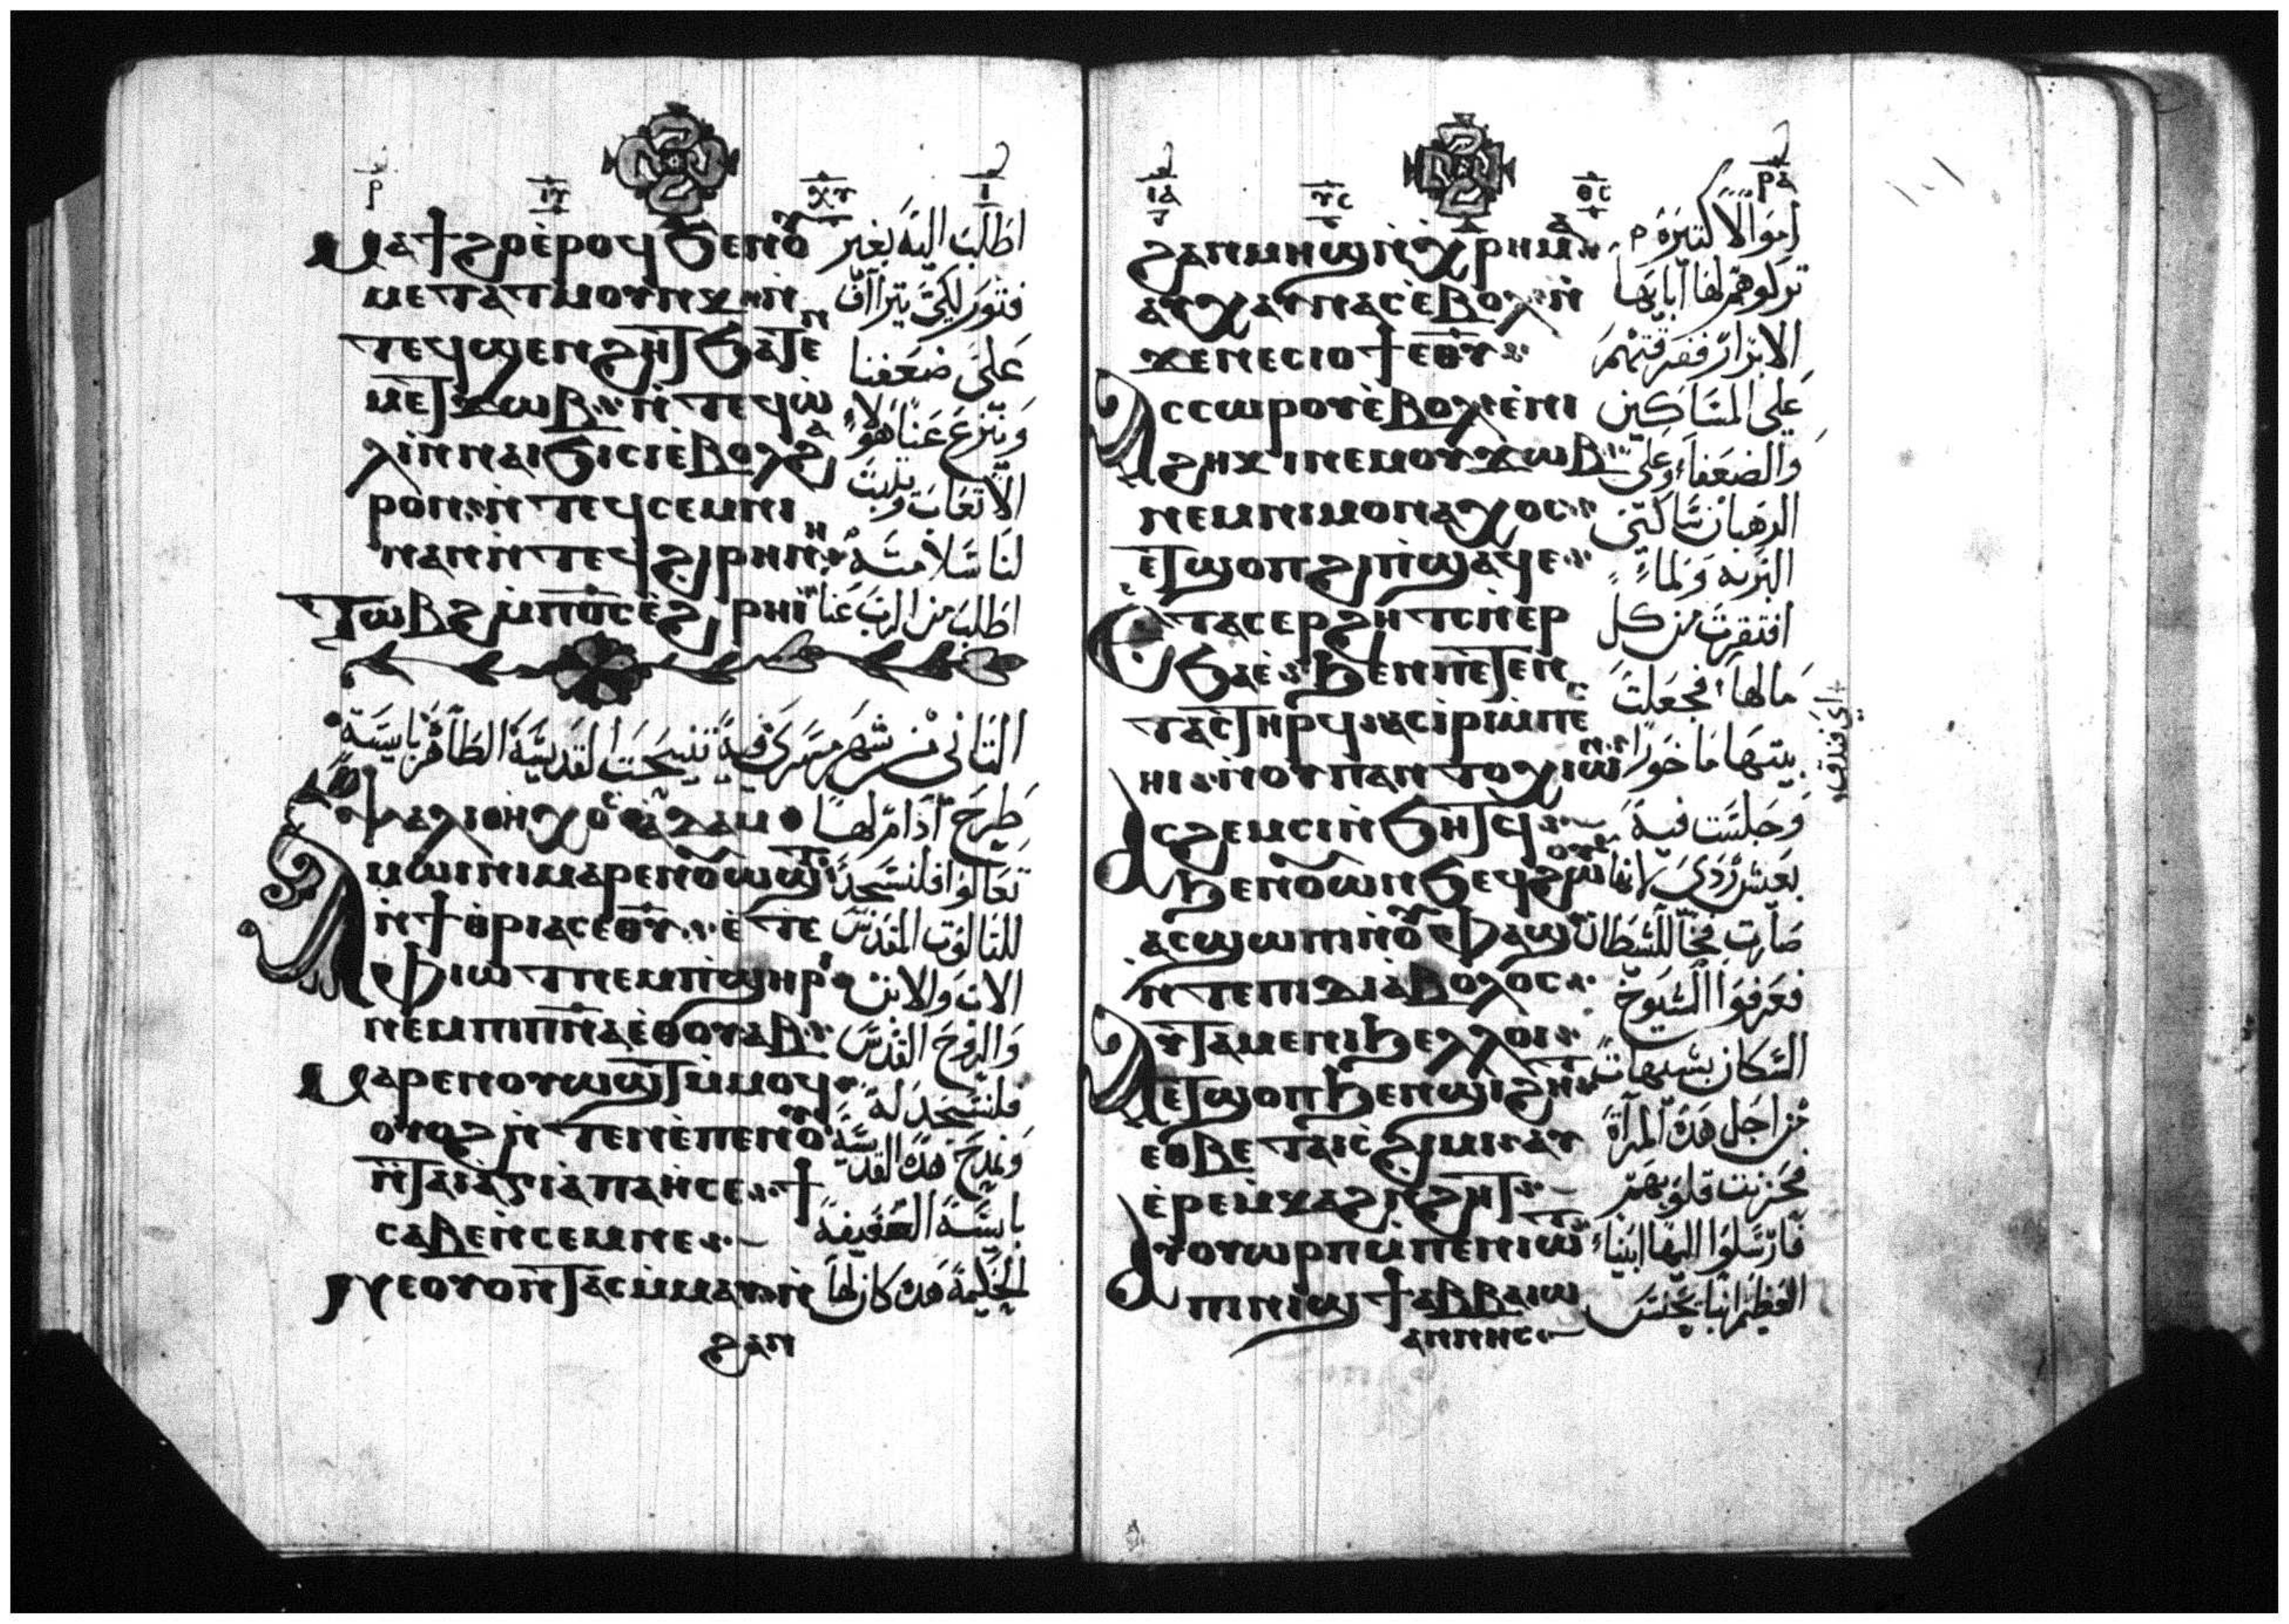 ⲙⲁϯϩⲟ ⲉ̀ⲣⲟϥ ϧⲉⲛ ⲟⲩ
ⲙⲉⲧⲁⲧⲙⲟⲩⲛⲕ
ⲧⲉϥϣⲉⲛϩⲏⲧ ϧⲁ ⲧⲉⲛ
ⲙⲉⲧϫⲱⲃ ⲛ̀ⲧⲉϥⲱ̀
ⲗⲓ ⲛ̀ⲛⲁⲓϧⲓⲥⲓ ⲉ̀ⲃⲟⲗϩⲁ
ⲣⲟⲛ ⲛ̀ⲧⲉϥⲥⲉⲙⲛⲓ
ⲛⲁⲛ ⲛ̀ⲧⲉϥϩⲓⲣⲏⲛⲏ
ⲧⲱⲃϩ ⲙ̀ⲡ︦ⲟ︦ⲥ ⲉ̀ϩⲣⲏⲓ
اطلب اليه بغير
فتور لكي يتراآف
على ضعفنا
وينزع عنا هولاء
الاتعاب ويثبت
لنا سلامته
اطلب من الرب عنا
الثاني من شهر مسرى فيه تنيحت القديسة الطاهرة بايسة
ⲯⲁⲗⲓ ⲟⲛ ⲏⲭⲟⲥ ⲁⲇⲁⲙ
طرح ادام لها
ⲁⲙⲱⲓⲛⲓ ⲙⲁⲣⲉⲛⲟⲩⲱϣⲧ
ⲛ̀ϯⲑⲣⲓⲁⲥ ⲉ︦ⲑ︦ⲩ ⲉ̀ⲧⲉ
ⲫⲓⲱⲧ ⲛⲉⲙ ⲡ̀ϣⲏⲣⲓ
ⲛⲉⲙ ⲡⲓⲡ︦ⲛ︦ⲁ ⲉ̀ⲑⲟⲩⲁⲃ
ⲙⲁⲣⲉⲛⲟⲩⲱϣⲧ ⲙ̀ⲙⲟϥ
ⲟⲩⲟϩ ⲛ̀ⲧⲉⲛⲉ̀ⲡⲉⲛⲟⲩ
ⲛ̀ⲧⲁⲓⲁ̀ⲅⲓⲁ ⲡⲁⲏⲥⲉ ϯ
ⲥⲁⲃⲉ ⲛ̀ⲥⲉⲙⲛⲉ
ⲅⲉ ⲟⲩⲟⲛⲧⲁⲥ ⲙ̀ⲙⲁⲩ ⲛ̀
ϩⲁⲛ
تعالوا فلنسجد
للثالوث المقدس
الاب والابن
والروح القدس
فلنسجد له
ونمدح هذه القديسة
بايسة العفيفة
الحكيمة هذه كان لها
ϩⲁⲛⲙⲏϣ ⲛ̀ⲭⲣⲏⲙⲁ
ⲁⲩⲭⲁⲩ ⲛⲁⲥ ⲉ̀ⲃⲟⲗ ⲛ̀
ϫⲉ ⲛⲉⲥⲓⲟϯ ⲉ︦ⲑ︦ⲩ
ⲁⲥⲥⲱⲣ ⲟⲩⲉ̀ⲃⲟⲗ ⲉ̀ⲛⲓ
ϩⲏⲕⲓ ⲛⲉⲙ ⲟⲩϫⲱⲃ
ⲛⲉⲙ ⲛⲓⲙⲟⲛⲁⲭⲟⲥ
ⲉ̀ⲧϣⲟⲡ ϩⲓ ⲡ̀ϣⲁϥⲉ
ⲉⲧⲁⲥⲉⲣϩⲏⲧⲥ ⲛ̀ⲉⲣ
ϧⲁⲉ̀ ϧⲉⲛ ⲡⲉⲧⲉⲛ
ⲧⲁⲥ ⲧⲏⲣϥ ⲁⲥⲓⲣⲓ ⲙ̀ⲡⲉⲥ
ⲏⲓ ⲛ̀ⲟⲩⲡⲁⲛⲧⲟⲭⲓⲟⲛ
ⲁⲥϩⲉⲙⲥⲓ ⲛ̀ϧⲏⲧϥ
ϧⲉⲛ ⲟⲩⲱⲛϧ ⲉϥϩⲱⲟⲩ
ⲁⲥϣⲱⲡⲓ ⲛ̀ⲟⲩⲫⲁϣ
ⲛ̀ⲧⲉ ⲡⲓⲇⲓⲁⲃⲟⲗⲟⲥ
ⲁⲩⲧⲁⲙⲉ ⲛⲓϧⲉⲗⲗⲟⲓ
ⲉⲧϣⲟⲡ ϧⲉⲛ ϣⲓϩⲏⲧ
ⲉⲑⲃⲉ ⲧⲁⲓⲥϩⲓⲙⲓ ⲁⲩ
ⲉⲣⲉⲙⲕⲁϩ ⲛ̀ϩⲏⲧ
ⲁⲩⲟⲩⲱⲣⲡ ⲙ̀ⲡⲉⲛⲓⲱⲧ
ⲡⲓⲛⲓϣϯ ⲁⲃⲃⲁ ⲓⲱ
ⲁⲛⲛⲏⲥ
اموالا كثيرة
تركوهم لها آبايها
الابرار ففرقتهم
على المساكين
والضعفاء وعلى
الرهبان ساكني
البرية ولما
افتقرت من كل
مالها فجعلت
بيتها ماخورا
اي فندق
وجلست فيه
بعيش ردي لانها
صارت فخا للشيطان
فعرفوا الشيوخ
السكان بشيهات
من اجل هذه المرآة
فحزنت قلوبهم
فارسلوا اليها ابينا
العظيم انبا يحنس